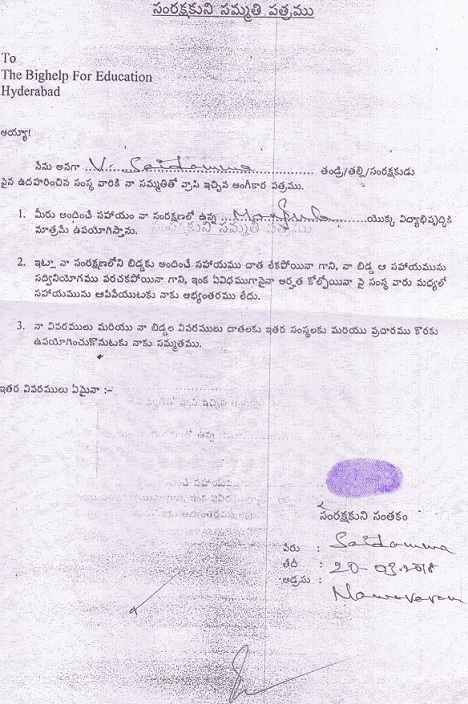 సంరక్షకుని సమ్మతి పత్రము
To
The Bighelp For Education
Hyderabad
అయ్యా!
నేను అనగా V. Saidamma తండ్రి/తల్లి/సంరక్షకుడు
పైన ఉదహరించిన సంస్థ వారికి నా సమ్మతితో వ్రాసి ఇచ్చిన అంగీకార పత్రము.
1. మీరు అందించే సహాయం నా సంరక్షణలో ఉన్న Manjula యొక్క విద్యాభివృద్ధికి
మాత్రమే ఉపయోగిస్తాను.
2. ఇట్లా నా సంరక్షణలోని బిడ్డకు అందించే సహాయము దాత లేకపోయినా గాని, నా బిడ్డ ఆ సహాయమును
సద్వినియోగము పరచకపోయినా గాని, ఇంక ఏవిధముగానైనా అర్హత కోల్పోయినా పై సంస్థ వారు మధ్యలో
సహాయమును ఆపివేయుటకు నాకు అభ్యంతరము లేదు.
3. నా వివరములు మరియు నా బిడ్డల వివరములు దాతలకు ఇతర సంస్థలకు మరియు ప్రచారము కొరకు
ఉపయోగించుకొనుటకు నాకు సమ్మతము.
ఇతర వివరములు ఏమైనా :-
సంరక్షకుని సంతకం
పేరు : Saidamma
తేదీ : 20-03-2018
అడ్రసు :